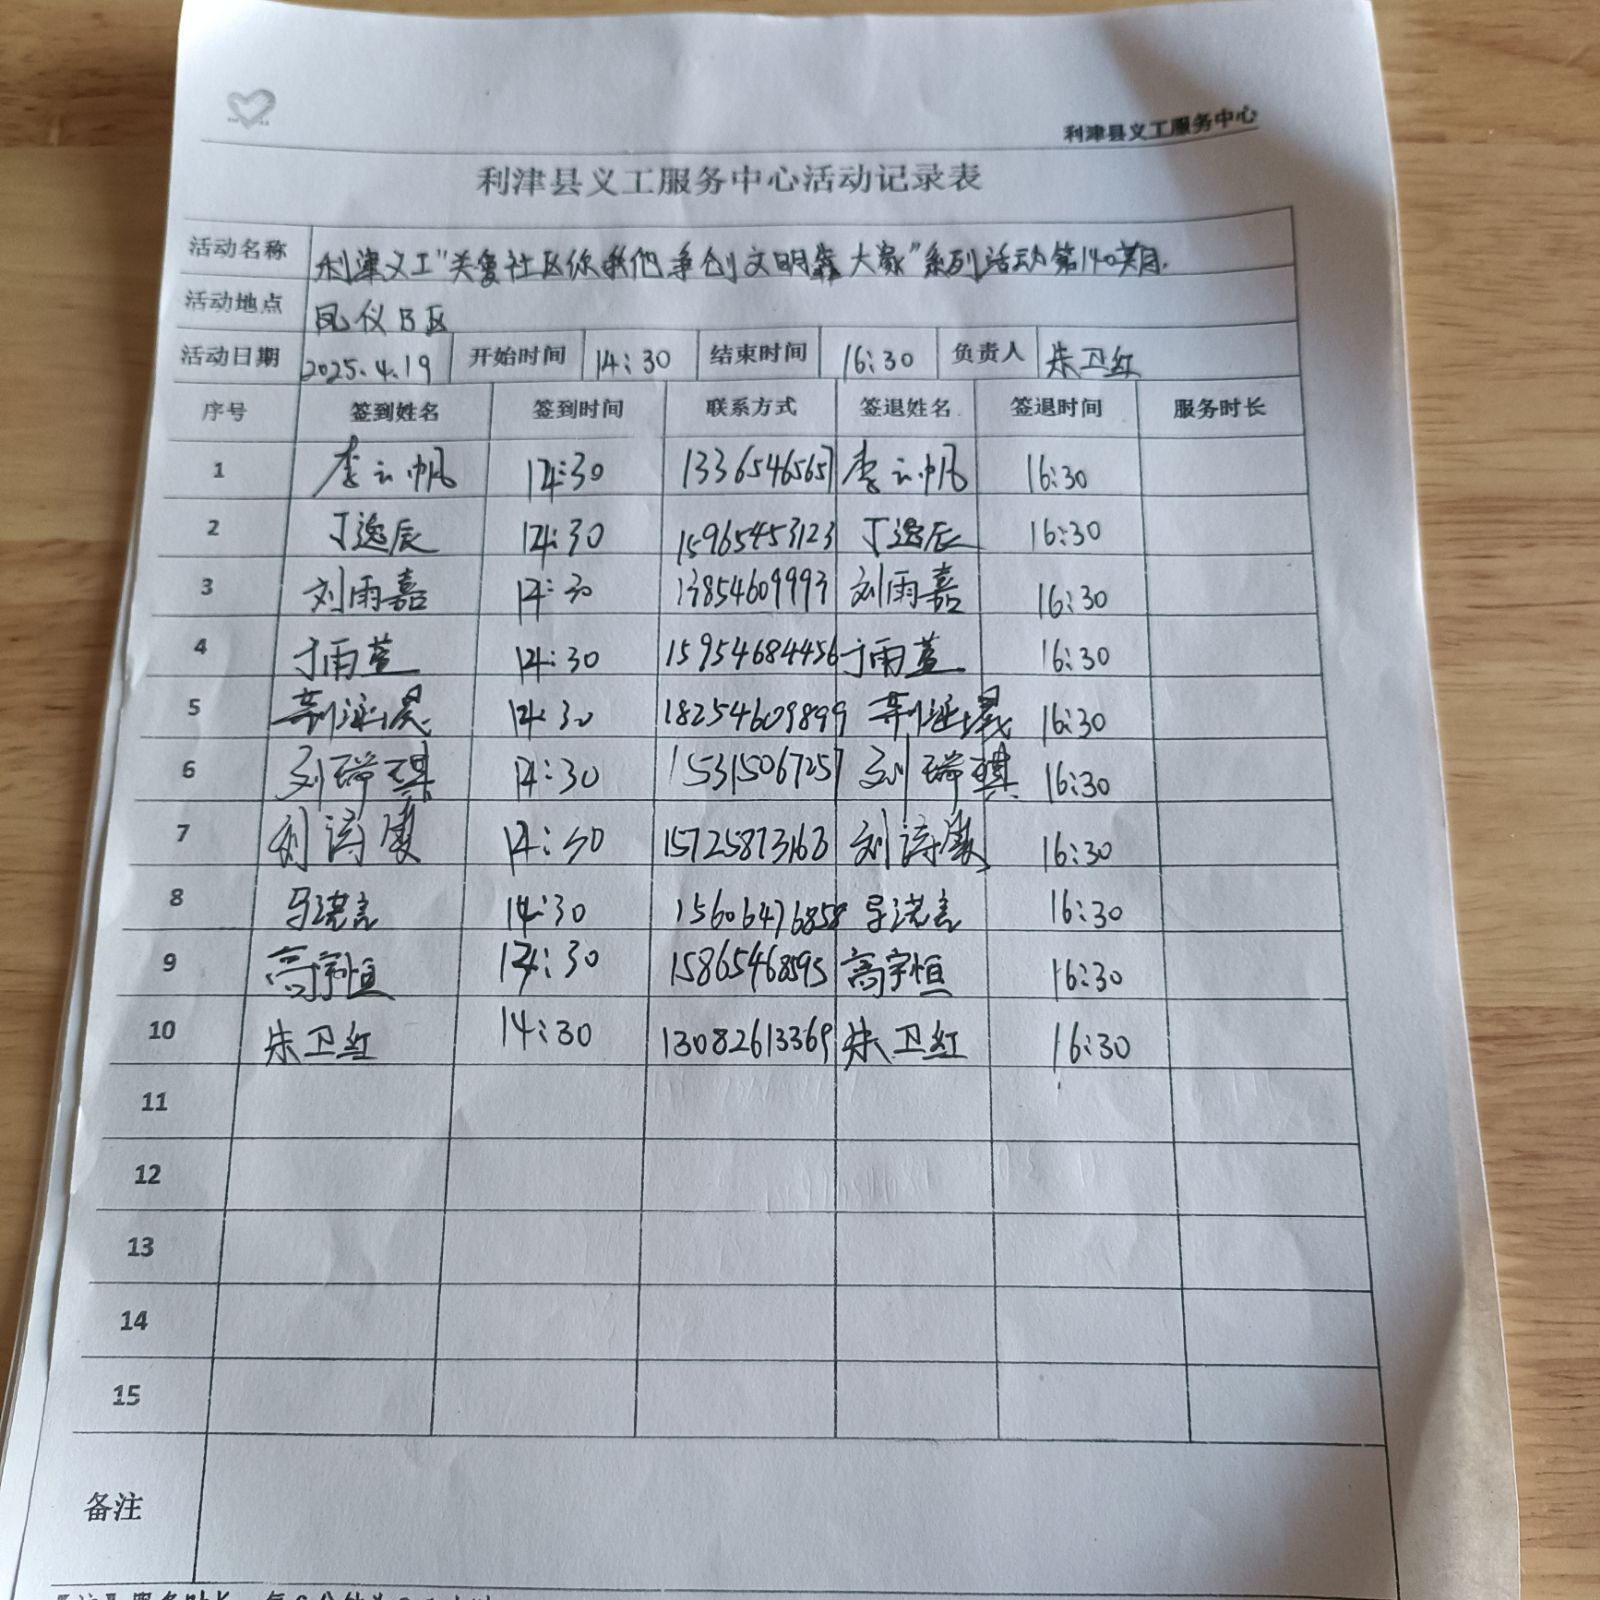 利津县义工服务中心
利津县义工服务中心活动记录表
活动名称 利津义工"关爱社区你我他 争创文明靠大家"系列活动第140期.
活动地点 凤仪B区
活动日期 2025.4.19 开始时间 14:30 结束时间 16:30 负责人 朱卫红
序号 签到姓名 签到时间 联系方式 签退姓名 签退时间 服务时长
1 李云帆 14:30 13365465657 李云帆 16:30
2 丁逸辰 14:30 15965453123 丁逸辰 16:30
3 刘雨嘉 14:30 13854609993 刘雨嘉 16:30
4 于雨萱 14:30 15954684456 于雨萱 16:30
5 14:30 18254609899 16:30
6 刘瑞琪 14:30 15315067257 刘瑞琪 16:30
7 14:30 15725873163 16:30
8 马浩言 14:30 15606476858 马浩言 16:30
9 高宇恒 14:30 15865468595 高宇恒 16:30
10 朱卫红 14:30 13082613369 朱卫红 16:30
11
12
13
14
15
备注